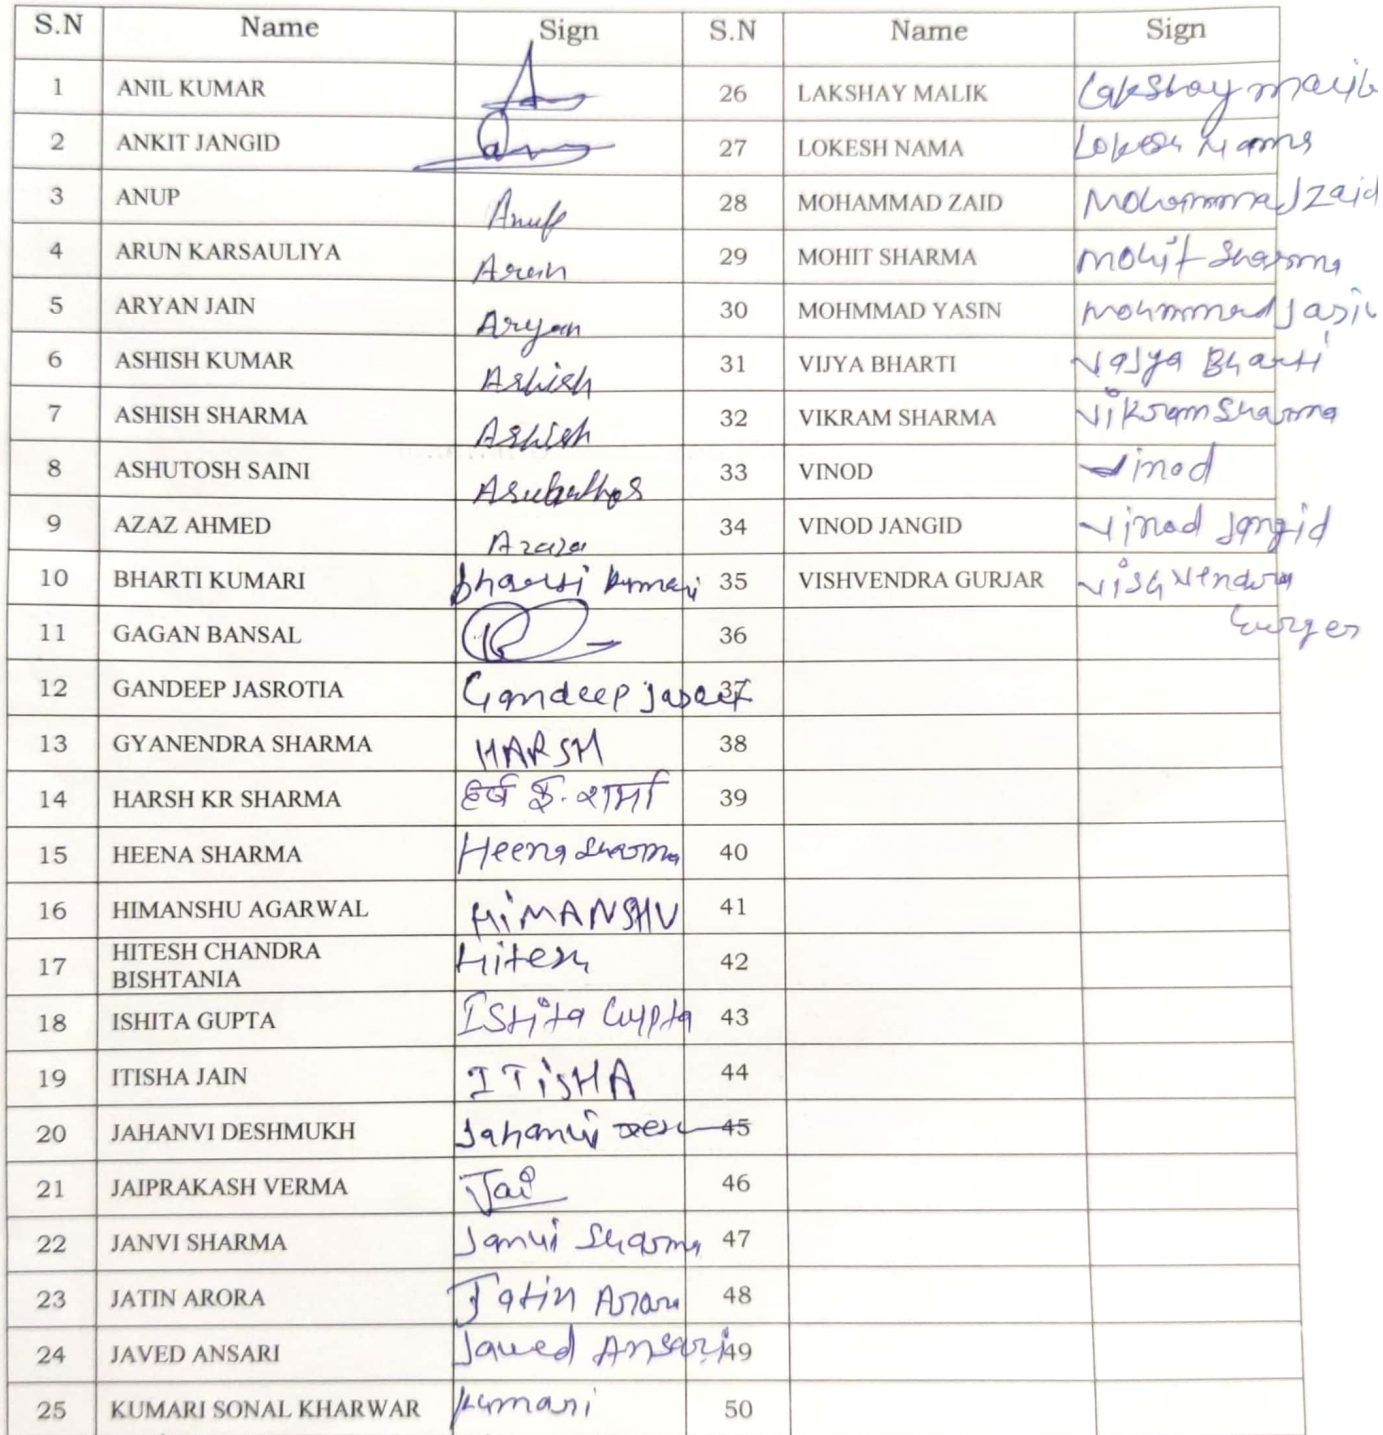 S.N Name Sign S.N Name Sign
1 ANIL KUMAR 26 LAKSHAY MALIK Lakshay malik
2 ANKIT JANGID 27 LOKESH NAMA Lokesh Nama
3 ANUP Anup 28 MOHAMMAD ZAID Mohammad zaid
4 ARUN KARSAULIYA Arun 29 MOHIT SHARMA mohit sharma
5 ARYAN JAIN Aryan 30 MOHMMAD YASIN mohmmad
6 ASHISH KUMAR Ashish 31 VIJYA BHARTI Bharti
7 ASHISH SHARMA Ashish 32 VIKRAM SHARMA Vikram Sharma
8 ASHUTOSH SAINI 33 VINOD Vinod
9 AZAZ AHMED 34 VINOD JANGID Vinod Jangid
10 BHARTI KUMARI bharti kumari 35 VISHVENDRA GURJAR Vishvendra
11 GAGAN BANSAL 36
12 GANDEEP JASROTIA Gandeep 37
13 GYANENDRA SHARMA HARSH 38
14 HARSH KR SHARMA हर्ष कु. शर्मा 39
15 HEENA SHARMA Heena sharma 40
16 HIMANSHU AGARWAL HiMANSHU 41
17 HITESH CHANDRA BISHTANIA Hitesh 42
18 ISHITA GUPTA Gupta 43
19 ITISHA JAIN ITiSHA 44
20 JAHANVI DESHMUKH Jahanvi 45
21 JAIPRAKASH VERMA Jai 46
22 JANVI SHARMA Janvi Sharma 47
23 JATIN ARORA Jatin 48
24 JAVED ANSARI Javed Ansari 49
25 KUMARI SONAL KHARWAR kumari 50